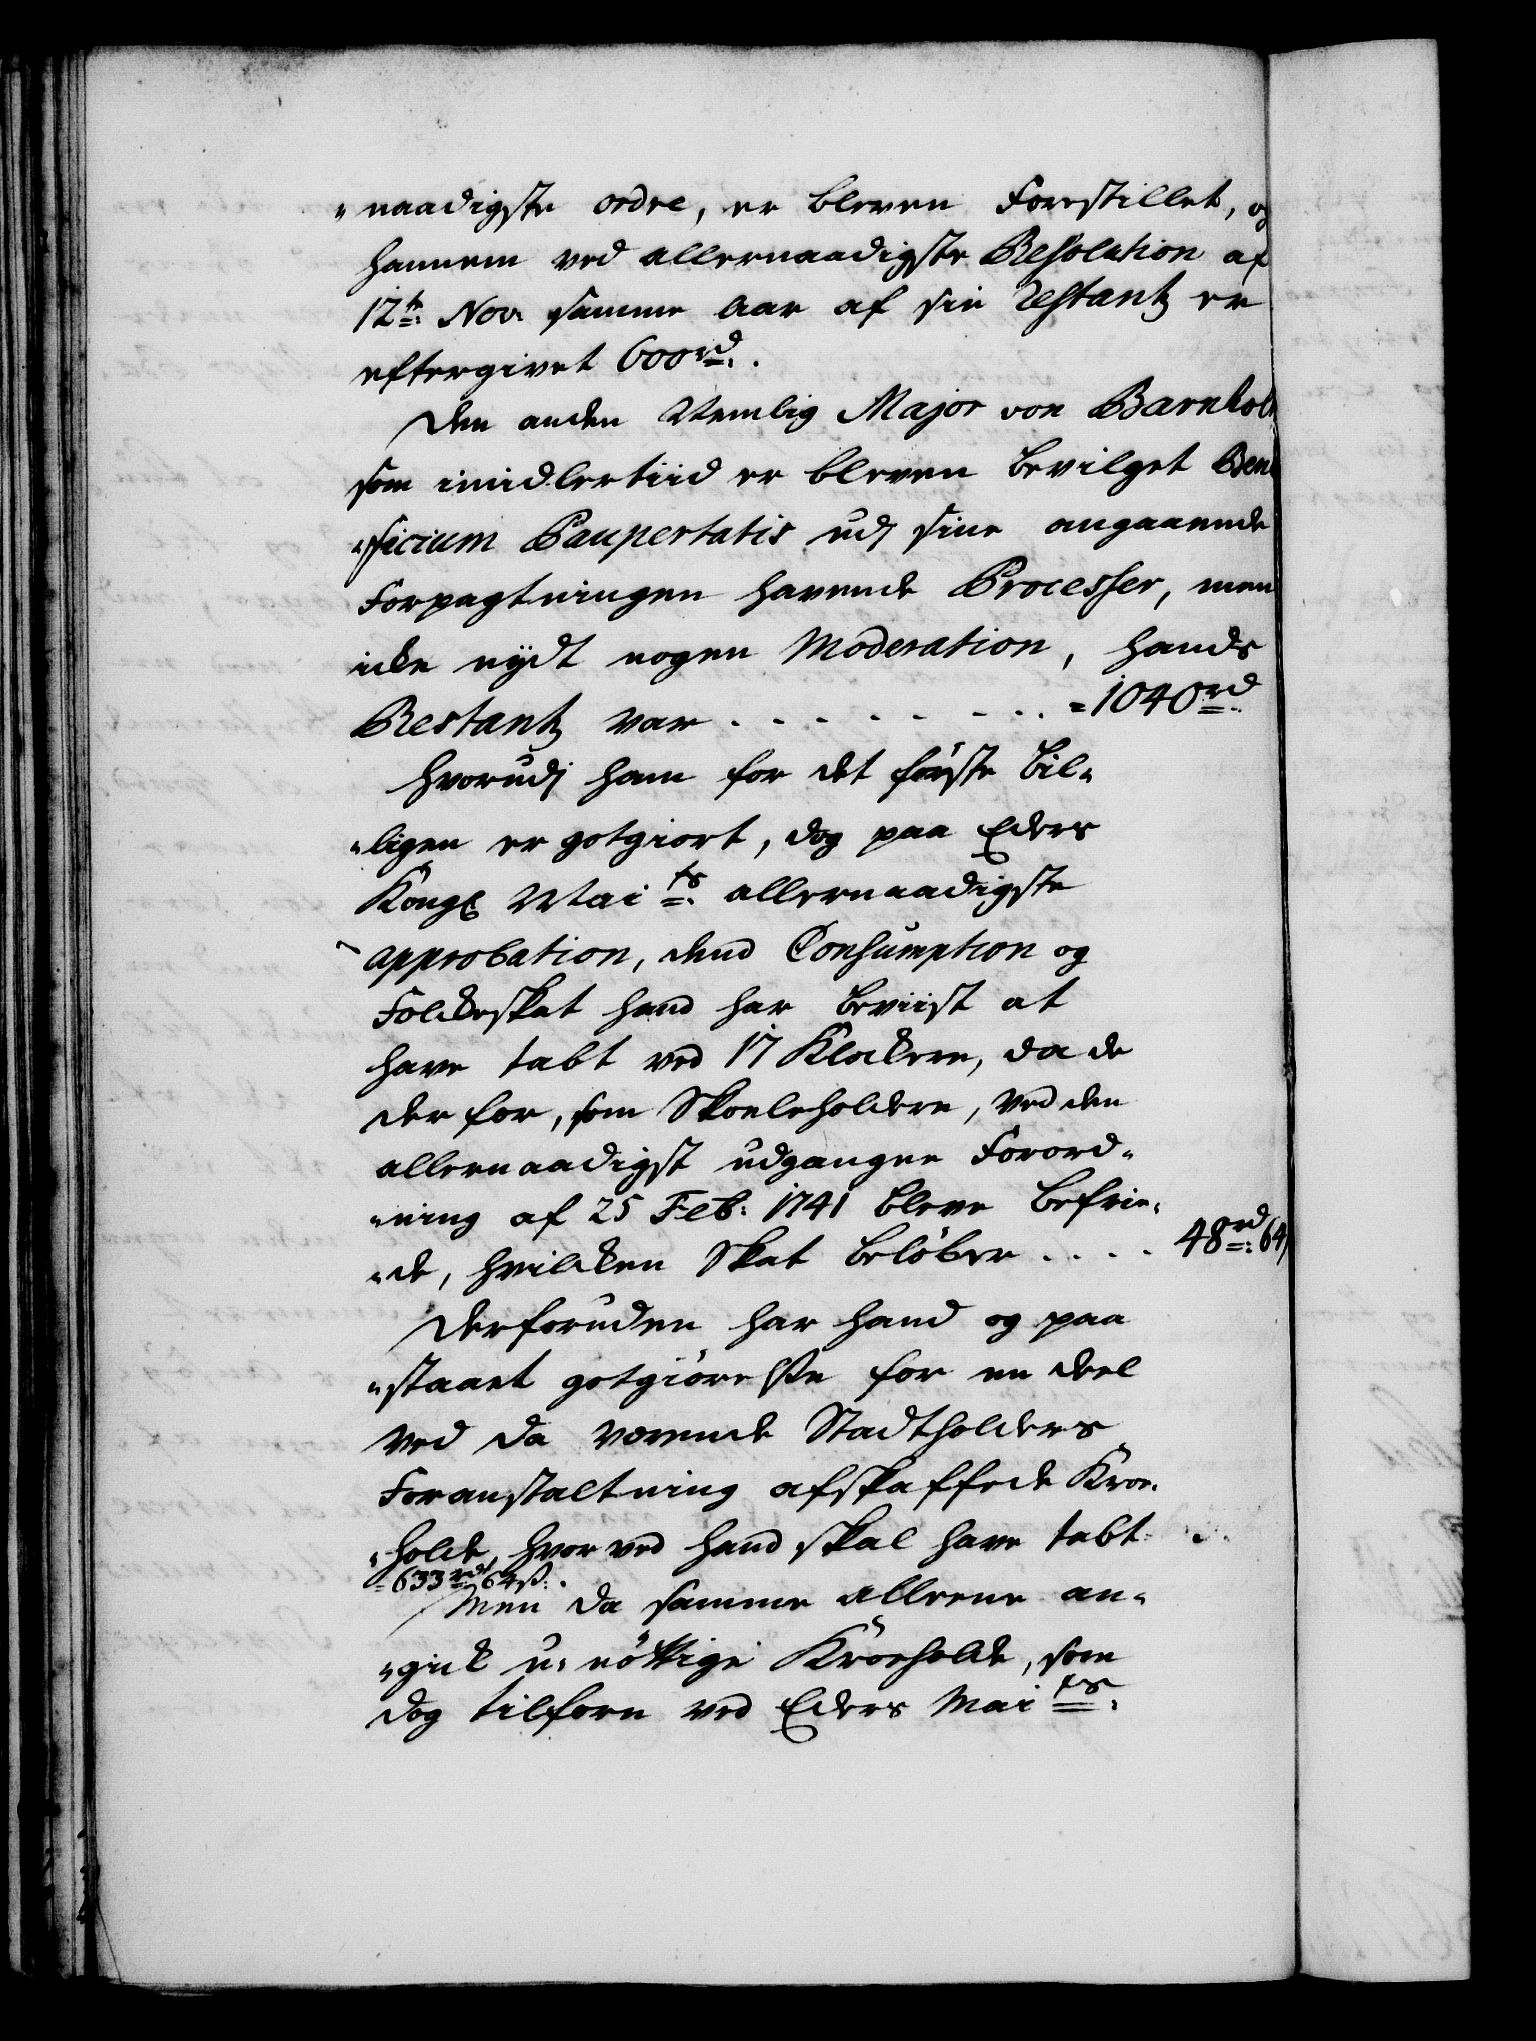 "naadigste ordre, er bleven Forestillet, og
hannem ved allernaadigste Resolution af
12te Nov: samme Aar af sin Restantz er
eftergivet 600rd.
Den anden Nemlig Major von Barnhol
som imidlertiid er bleven bevilget Bene
"ficium Paupertatis udj sine angaaende
Forpagtningen havende Processer, men
icke nydt nogen Moderation, hands
Restantz var . . . . . . . . . = 1040rd
Hvorudj ham for det første bil-
"ligen er gotgiort, dog paa Eders
Kongl Maits allernaadigste
approbation, dend Consumption og
Folckeskat hand har beviist at
have tabt ved 17 Klockere, da de
derfor, som Skoeleholdere, ved den
allernaadigst udgangne Forord-
"ning af 25 Feb: 1741 bleve befrie-
"de, hvilcken Skat beløber . . . . 48rd: 64
Derforuden har hand og paa
"staaet gotgiørelse for en deel
ved da værende Stadtholders
Foranstaltning afskaffede Kroe-
"hold, hvorved hand skal have tabt
= 633rd 64s:.
Men da samme alleene an-
"gick u-nøttige Kroehold, som
dog tilforn ved Eders Maits: